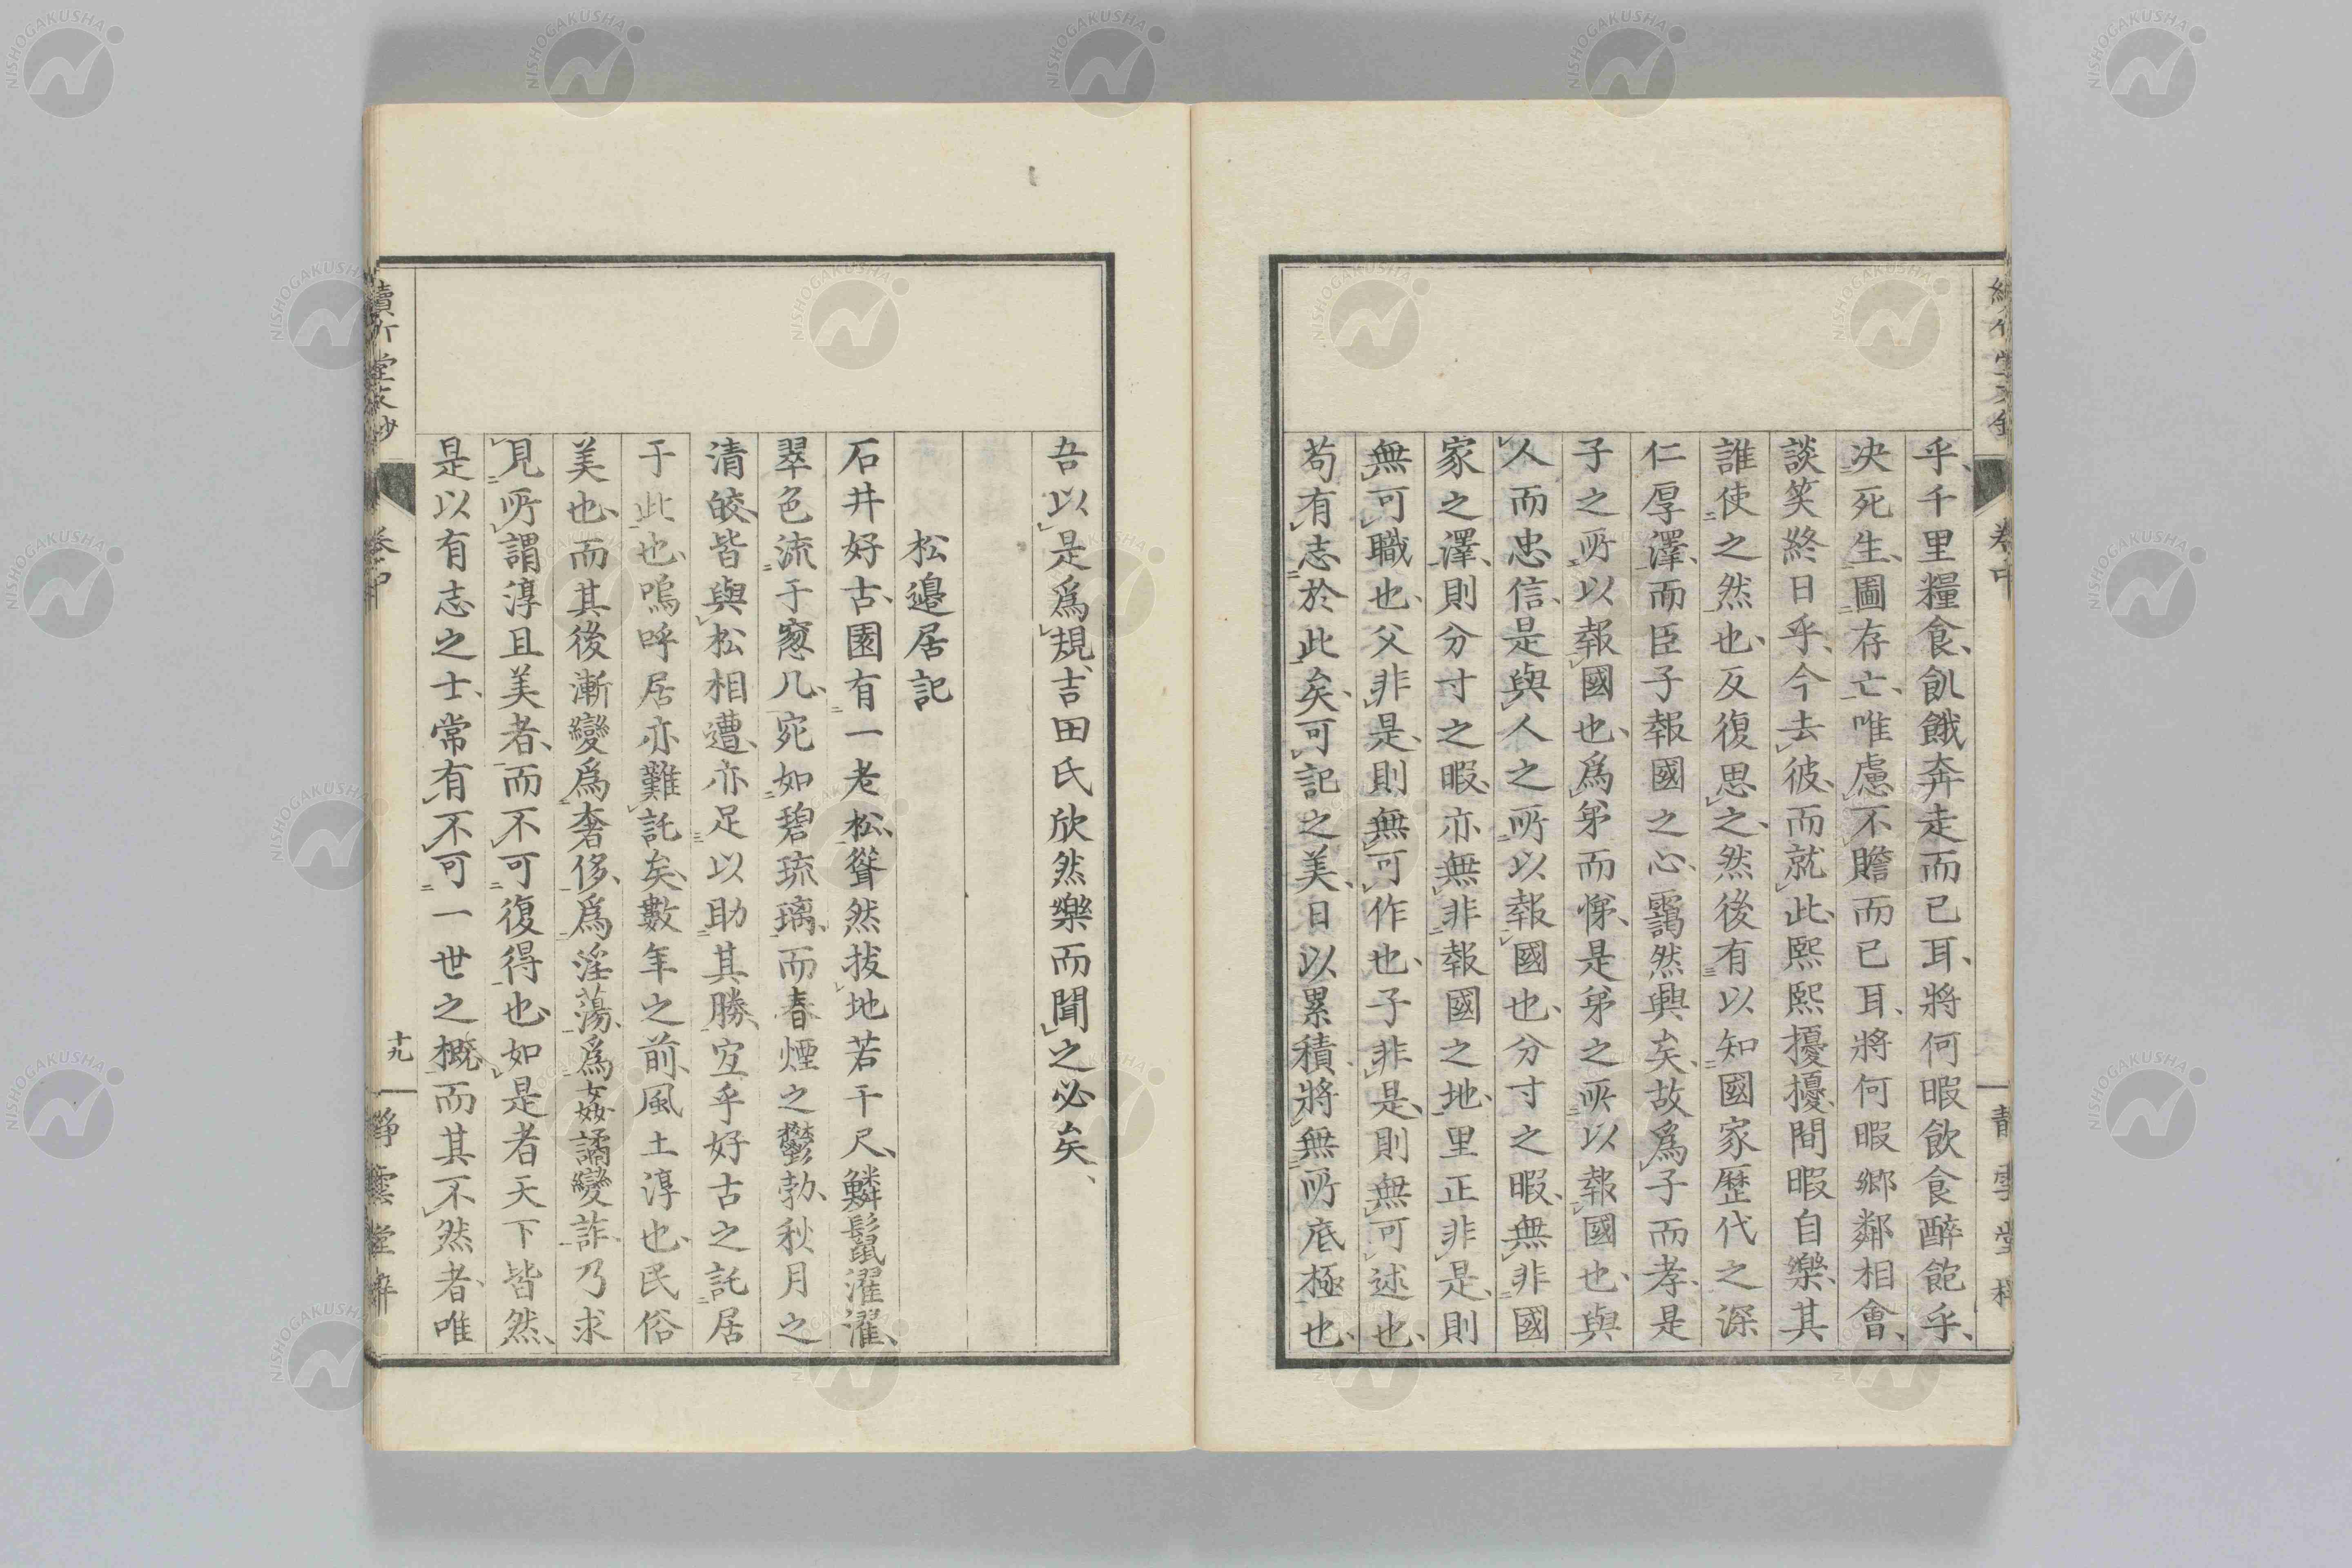 乎、千里糧食、飢餓奔走而已耳、將何暇飲食醉飽乎、
决死生、圖存亡、唯慮不贍而已耳、將何暇鄉鄰相會、
談笑終日乎、今去彼、而就此、熙熙擾擾、間暇自樂、其
誰使之然也、反復思之、然後有以知國家歷代之深
仁厚澤、而臣子報國之心、靄然興矣、故爲子而孝、是
子之所以報國也、爲弟而悌、是弟之所以報國也、與
人而忠信、是與人之所以報國也、分寸之暇、無非國
家之澤、則分寸之暇、亦無非報國之地、里正非是、則
無可職也、父非是、則無可作也、子非是、則無可述也、
苟有志於此矣、可記之美、日以累積、將無所底極也、
吾以是爲規、吉田氏欣然樂而聞之必矣、
松邉居記
石井好古、園有一老松、聳然拔地若干尺、鱗鬣濯濯、
翠色流于窻几、宛如碧琉璃、而春煙之鬱勃、秋月之
清皎、皆與松相遭、亦足以助其勝、宜乎好古之託居
于此也、嗚呼居亦難託矣、數年之前、風土淳也、民俗
美也、而其後漸變爲奢侈、爲淫蕩、爲姦譎變詐、乃求
見所謂淳且美者、而不可復得也、如是者天下皆然、
是以有志之士、常有不可一世之概、而其不然者、唯
卷中
十九